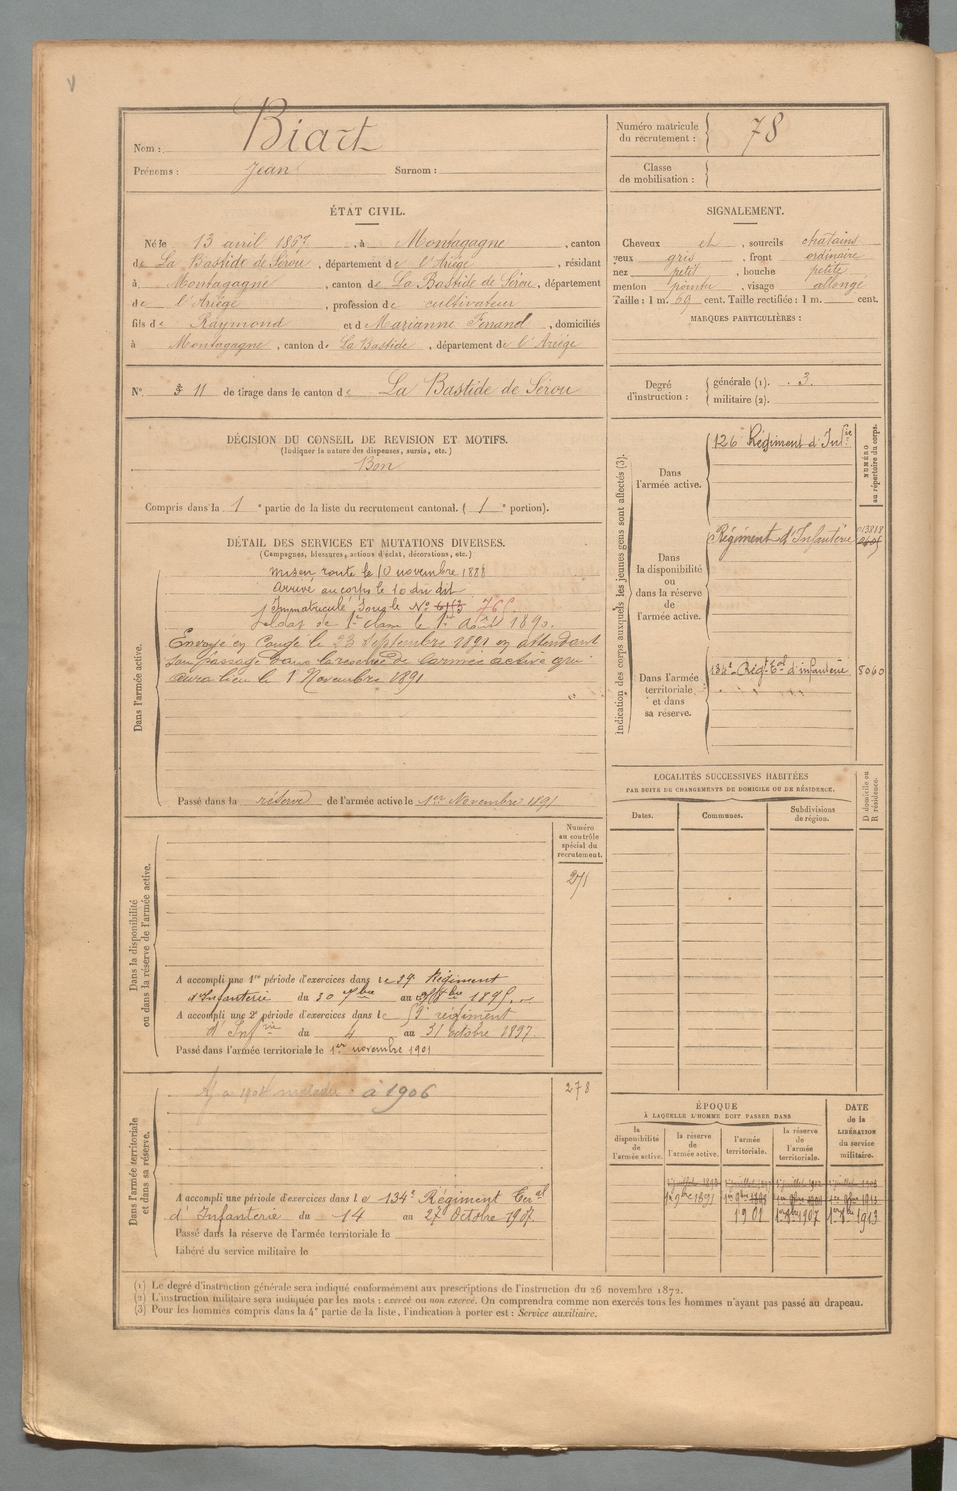 Nom : Biart
Prénoms : Jean Surnom :
Numéro matricule du recrutement : 78
Classe de mobilisation :
ÉTAT CIVIL.
Né le 13 avril 1867, à Montagagne, canton
de La Bastide de Sérou, département de l'Ariège, résidant
à Montagagne, canton de La Bastide de Sérou, département
de l'Ariège, profession de cultivateur
fils de Raymond et de Marianne, domiciliés
à Montagagne, canton de La Bastide, département de l'Ariège
N° 11 de tirage dans le canton de La Bastide de Sérou
SIGNALEMENT.
Cheveux et, sourcils chatains
yeux gris, front ordinaire
nez petit, bouche petite
menton pointu, visage allongé
Taille : 1 m. 69 cent. Taille rectifiée : 1 m. cent.
MARQUES PARTICULIÈRES :
Degré d'instruction : générale (1). 3.
militaire (2).
DÉCISION DU CONSEIL DE REVISION ET MOTIFS.
(Indiquer la nature des dispenses, sursis, etc.)
Bon
Compris dans la 1e partie de la liste du recrutement cantonal. (1e portion).
DÉTAIL DES SERVICES ET MUTATIONS DIVERSES.
(Campagnes, blessures, actions d'éclat, décorations, etc.)
Dans l'armée active.
Mis en route le 10 novembre 1888
Arrivé au corps le 10 du dit
Immatriculé sous le N°
Soldat de 1e classe le 1er Août 1890.
Envoyé en Congé le 23 Septembre 1891 en attendant
son passage dans la réserve de l'armée active qui
aura lieu le 1 Novembre 1891
Passé dans la réserve de l'armée active le 1er Novembre 1891
Indication des corps auxquels les jeunes gens sont affectés (3).
NUMÉRO au répertoire du corps.
Dans l'armée active.
126e Régiment d'Infie
Dans la disponibilité ou dans la réserve de l'armée active.
Régiment d'Infanterie
Dans l'armée territoriale et dans sa réserve.
134e Régt Tal d'infanterie 5060
LOCALITÉS SUCCESSIVES HABITÉES
PAR SUITE DE CHANGEMENTS DE DOMICILE OU DE RÉSIDENCE.
Dates. Communes. Subdivisions de région. D domicile ou R résidence.
Numéro au contrôle spécial du recrutement.
271
Dans la disponibilité ou dans la réserve de l'armée active.
A accompli une 1re période d'exercices dans le Régiment
d'Infanterie du 30 7bre au 8bre
A accompli une 2e période d'exercices dans le régiment
d'Infrie du 4 au 31 octobre 1897
Passé dans l'armée territoriale le 1er novembre 1901
Dans l'armée territoriale et dans sa réserve.
278
à 1906
A accompli une période d'exercices dans le 134e Régiment Teral
d'Infanterie du 14 au 27 Octobre 1907
Passé dans la réserve de l'armée territoriale le
Libéré du service militaire le
ÉPOQUE
À LAQUELLE L'HOMME DOIT PASSER DANS
DATE de la LIBÉRATION du service militaire.
la disponibilité de l'armée active. la réserve de l'armée active. l'armée territoriale. la réserve de l'armée territoriale.
1er 9bre 1891
1901 1907 1913
(1) Le degré d'instruction générale sera indiqué conformément aux prescriptions de l'instruction du 26 novembre 1872.
(2) L'instruction militaire sera indiquée par les mots : exercé ou non exercé. On comprendra comme non exercés tous les hommes n'ayant pas passé au drapeau.
(3) Pour les hommes compris dans la 4e partie de la liste, l'indication à porter est : Service auxiliaire.